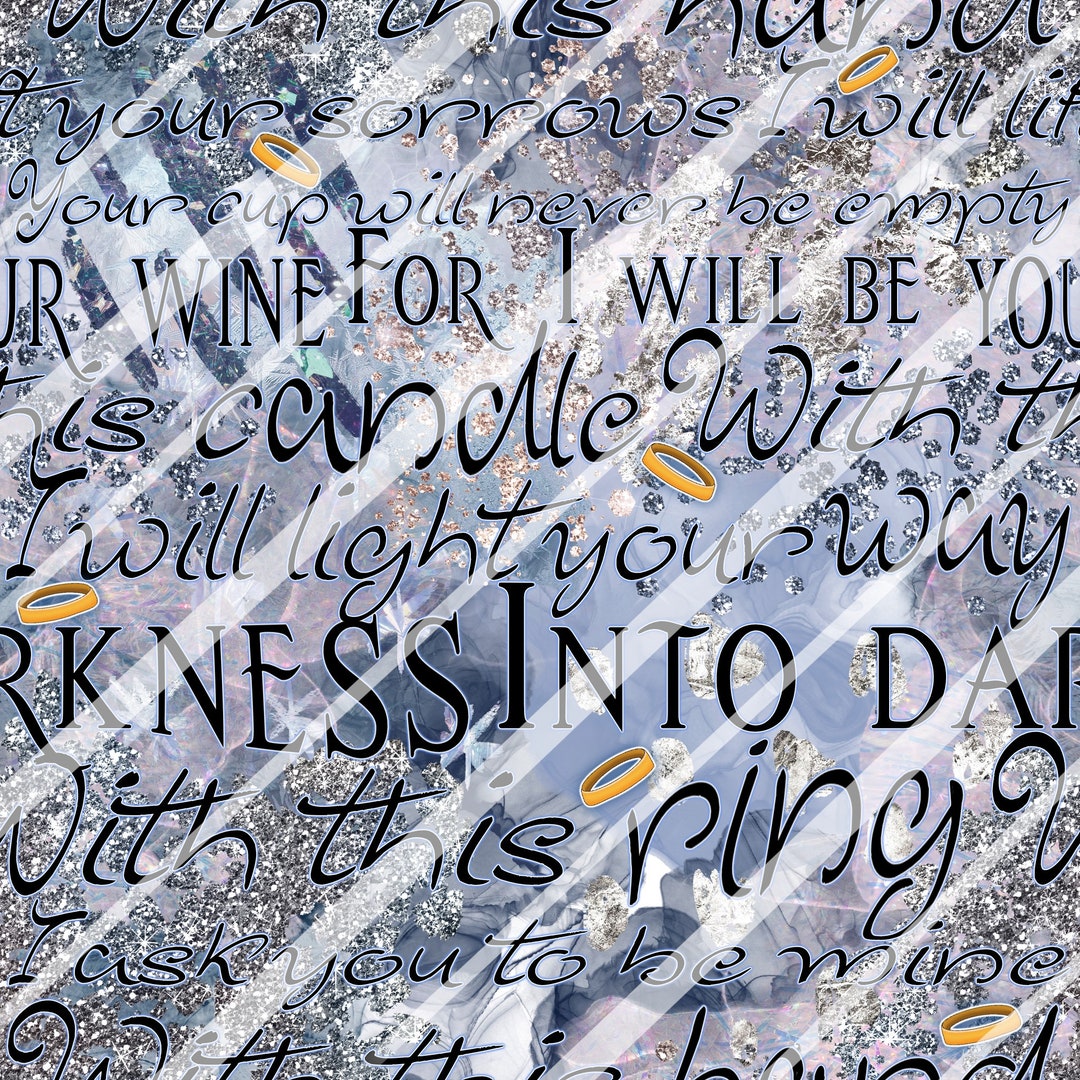 With this hand
ft your sorrows I will lif
Your cup will never be empty
UR WINE FOR I WILL BE YOU
this candle With th
I will light your way
RKNESS INTO DAR
With this ring W
I ask you to be mine
With this hand